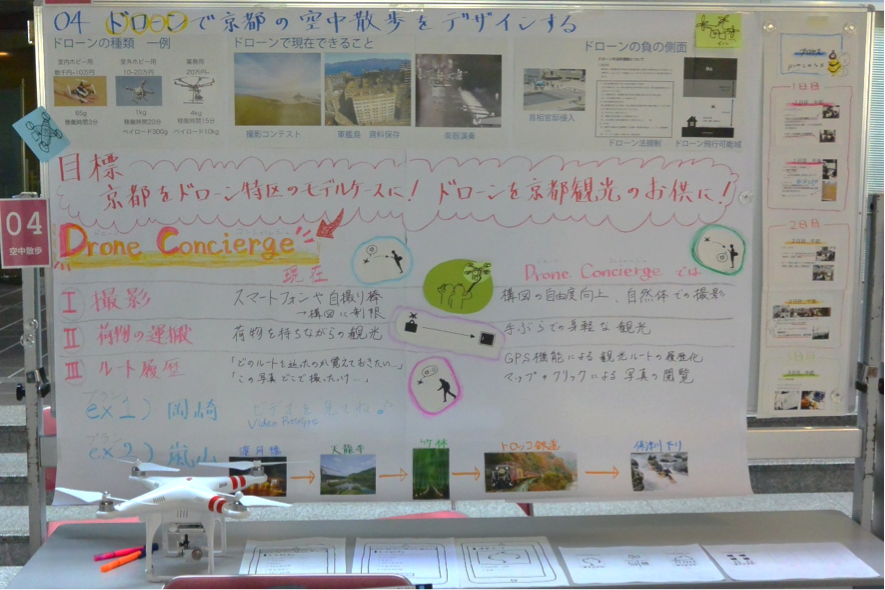 04 ドローンで京都の空中散歩をデザインする
ドローンの種類 一例
ドローンで現在できること
ドローンの負の側面
室内ホビー用
数千円~10万円
室外ホビー用
10~20万円
業務用
20万円~
65g
稼働時間3分
1kg
稼働時間20分
ペイロード300g
4kg
稼働時間15分
ペイロード10kg
撮影コンテスト
軍艦島 資料保存
楽器演奏
首相官邸侵入
ドローン法規制
ドローン飛行可能域
目標
京都をドローン特区のモデルケースに!
ドローンを京都観光のお供に!
04
空中散歩
Drone Concierge
現在
Drone Concierge では
I 撮影
スマートフォンや自撮り棒
→構図に制限
構図の自由度向上、自然体での撮影
II 荷物の運搬
荷物を持ちながらの観光
手ぶらでの身軽な観光
III ルート履歴
「どのルートを辿ったのか覚えておきたい…」
「この写真どこで撮ったっけ…」
GPS機能による観光ルートの履歴化
マップ+クリックによる写真の閲覧
プラン
ex1) 岡崎
ビデオを見てね♪
プラン
ex2) 嵐山
渡月橋
天龍寺
竹林
トロッコ鉄道
保津川下り
プロセス
1日目
2日目
3日目